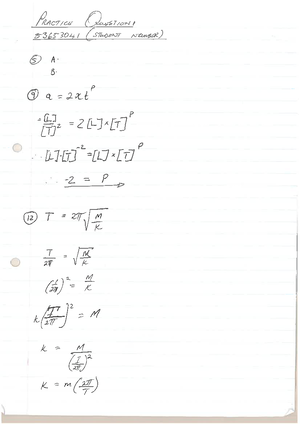 PRACTICE QUESTIONS
23653041 (STUDENT NUMBER)
⑤ A.
B.
⑨ a = 2xt^P
= [L]/[T]² = 2[L]×[T]^P
∴ [L]·[T]^-2 = [L]×[T]^P
∴ -2 = P
⑫ T = 2π√(M/K)
T/2π = √(M/K)
(T/2π)² = M/K
K(T/2π)² = M
K = M/(T/2π)²
K = m(2π/T)